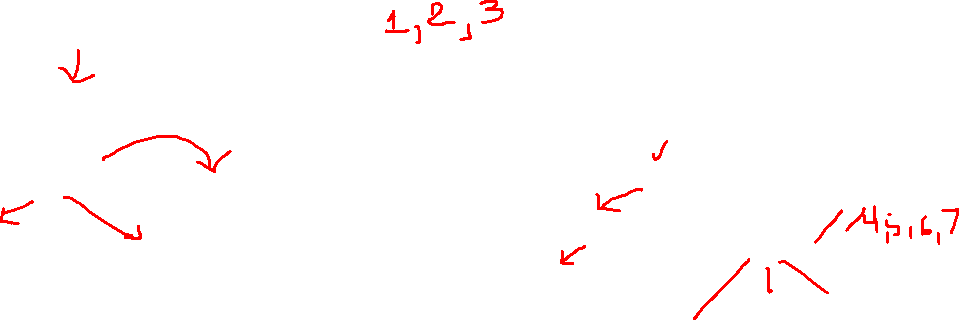 1, 2, 3
4, 5, 6, 7